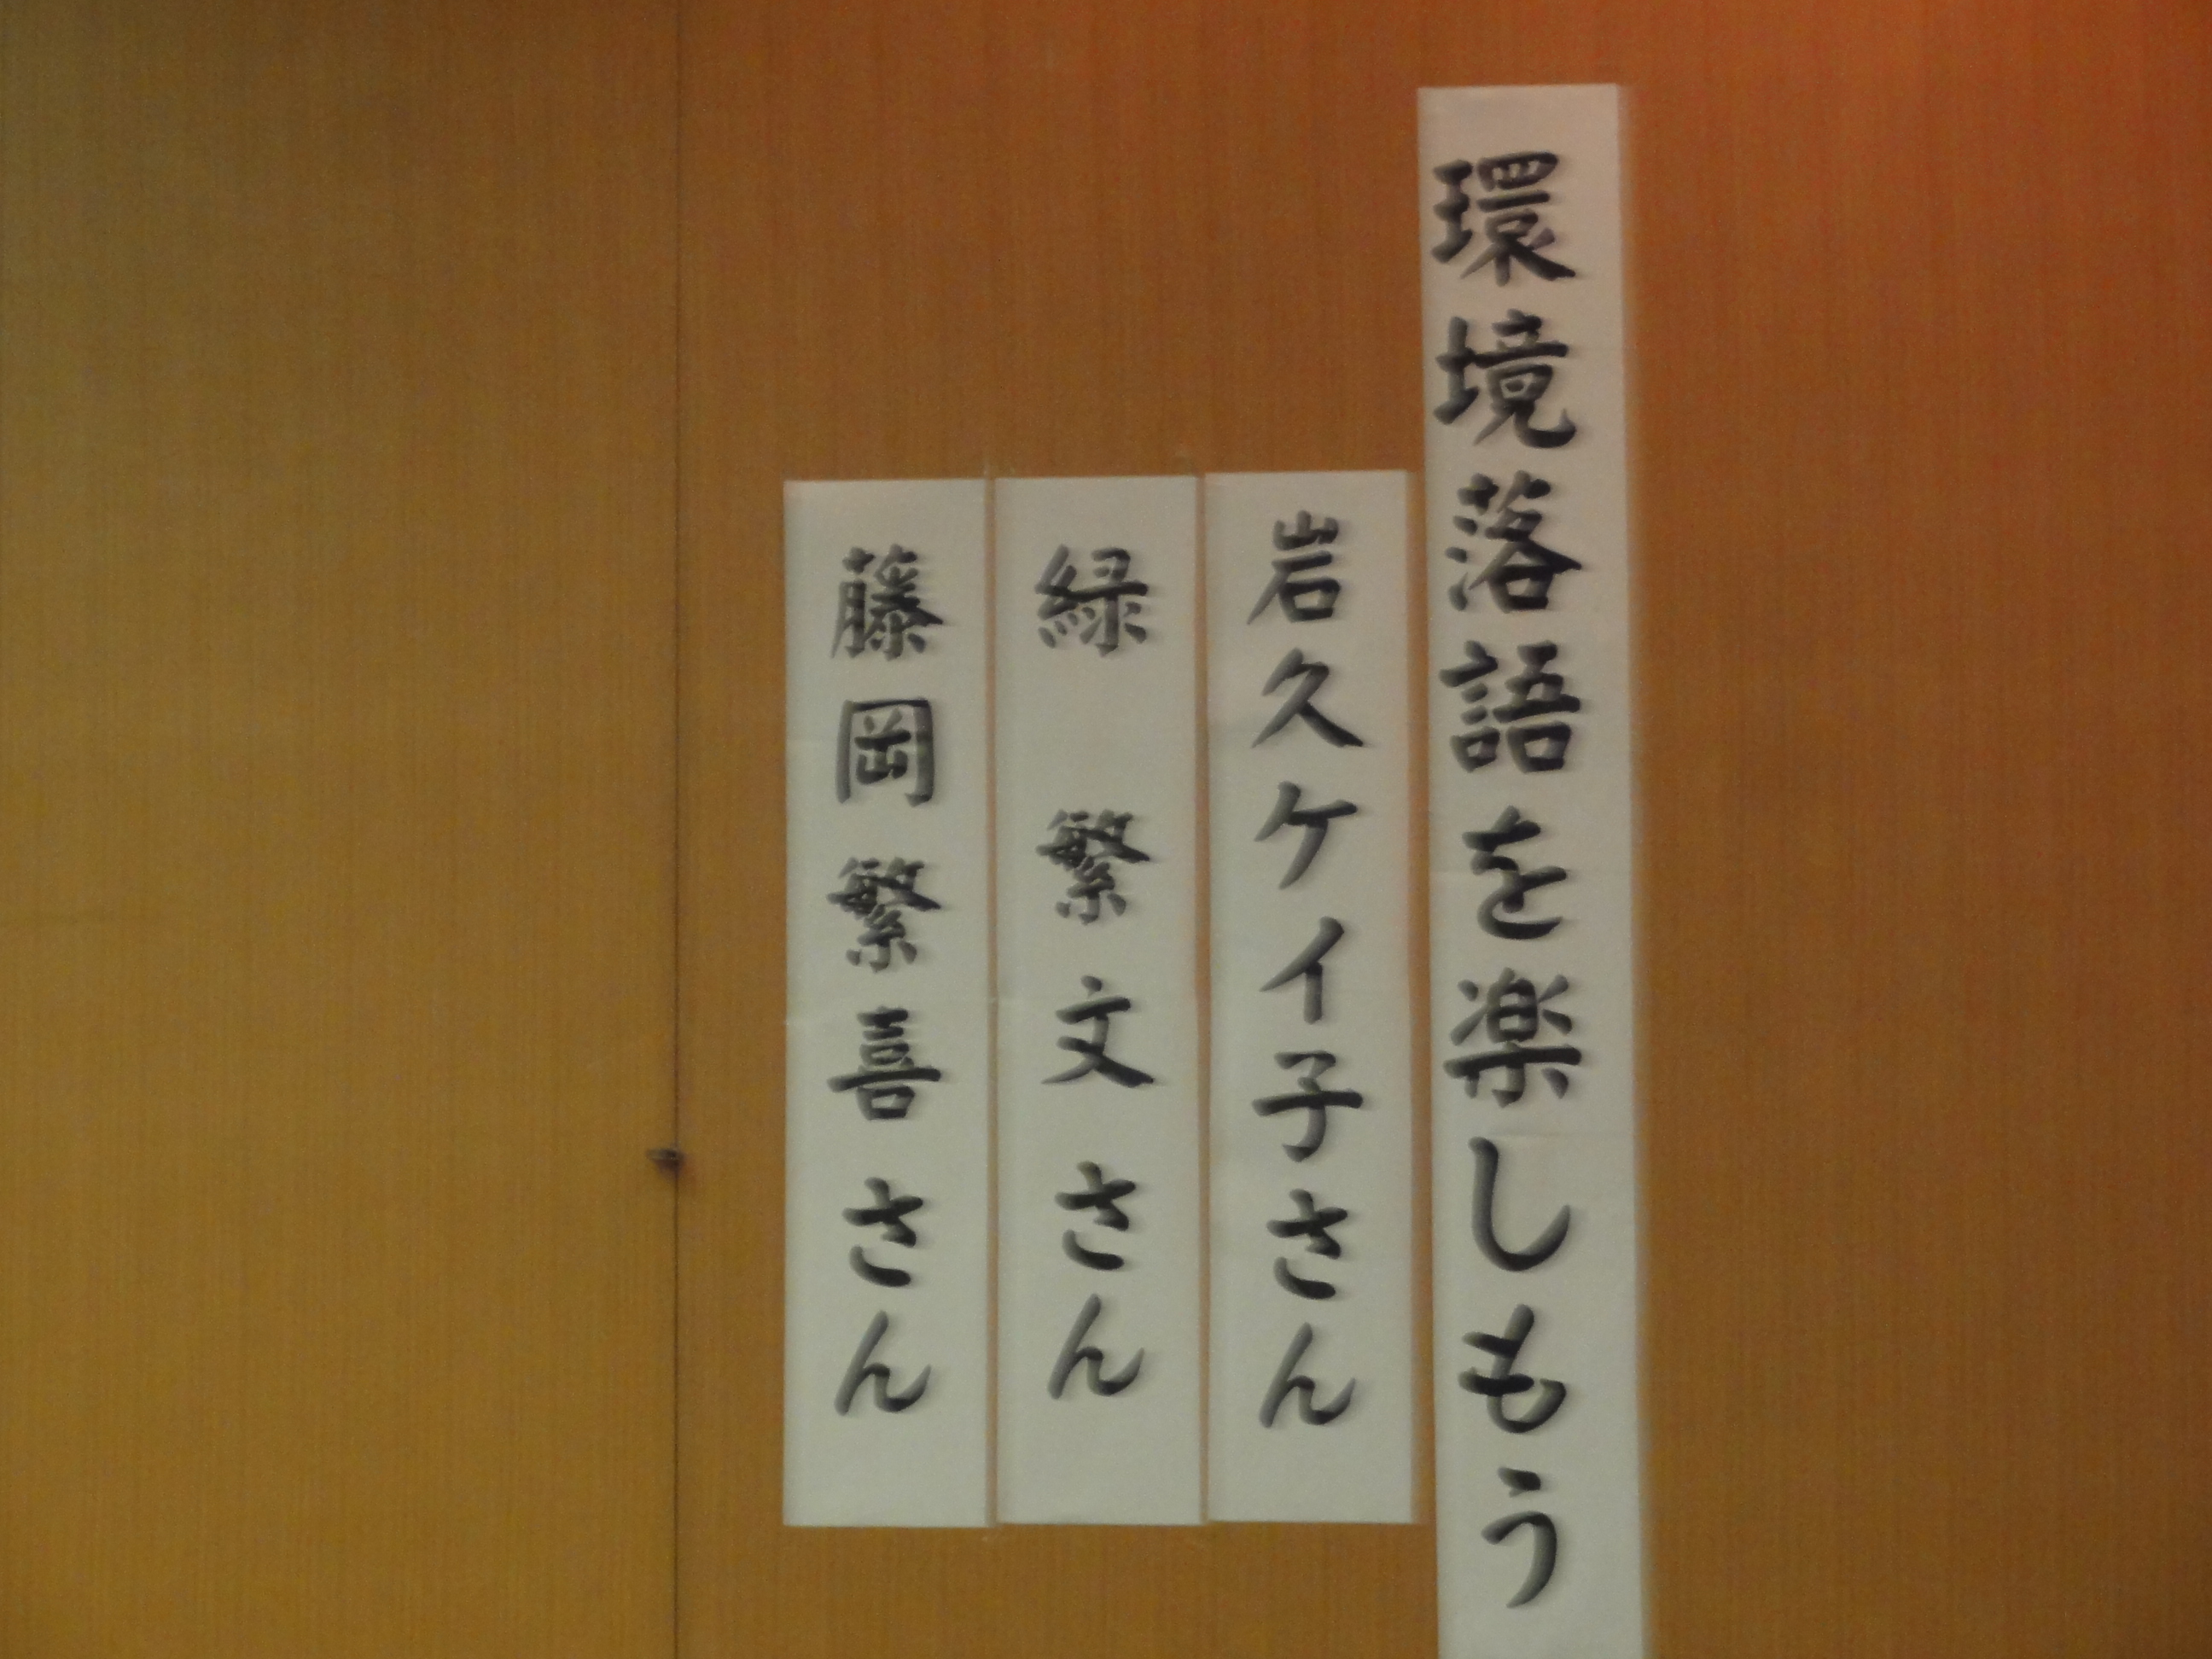 環境落語を楽しもう
岩久ケイ子さん
緑 繁文さん
藤岡繁喜さん